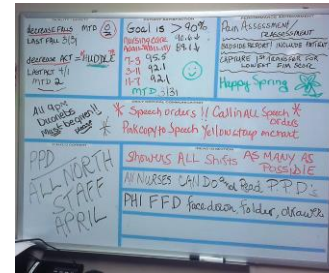 decrease FALLS MTD 0
LAST FALL 3/31
decrease ACT = "HUDDLE"
LAST ACT 4/1
MTD 2
GOAL is > 90%
Nursing care 90.6
7-3 95.5
3-11 92.1
11-7 92.1
MTD 3/31
PAIN ASSESSMENT/
REASSESSMENT
BEDSIDE REPORT/INCLUDE PATIENT
CAPTURE 1st TRANSFER FOR
LOWEST FIM SCORE
Happy Spring
All 9pm
must begiven!!
* Speech orders!! Call in ALL Speech *
orders
Pink copy to Speech Yellow stay in chart
PPD
ALL NORTH
STAFF
APRIL
SHOWERS ALL Shifts AS MANY AS
POSSIBLE
All NURSES CAN DO and Read P.P.D's
PHI FFD face down, folder, drawer